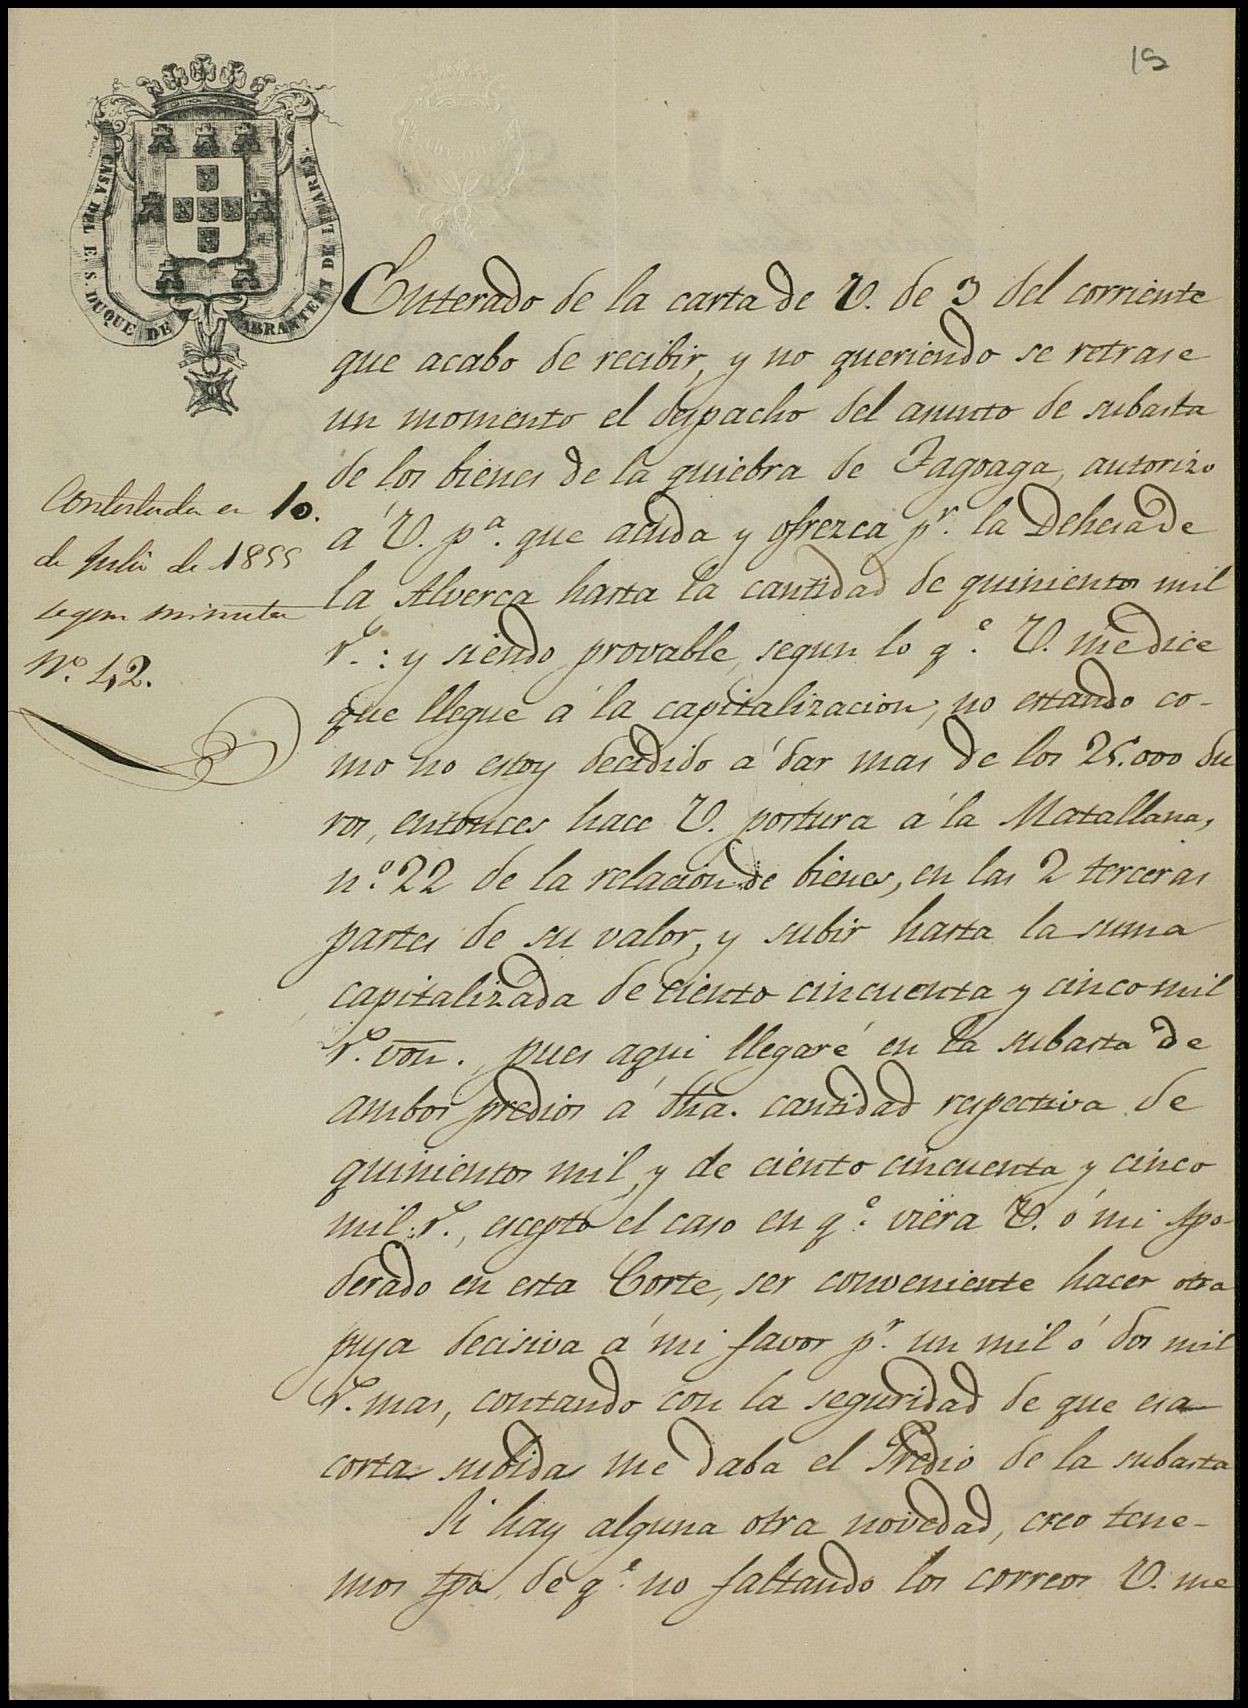 15
CASA DEL E. S. DUQUE DE ABRANTES I DE LINARES.
Enterado de la carta de V. de 3 del corriente
que acabo de recibir, y no queriendo se retrase
un momento el despacho del asunto de subasta
de los bienes de la quiebra de Fagoaga, autorizo
á V. pª. que acuda y ofrezca pʳ. la Dehesa de
la Alverca hasta la cantidad de quinientos mil
rˢ.: y siendo provable, segun lo qᵉ. V. me dice
que llegue á la capitalizacion, no estando co-
mo no estoy decidido á dar mas de los 25.000 du
ros, entonces hace V. postura á la Matallana,
nº. 22 de la relacion de bienes, en las 2 terceras
partes de su valor, y subir hasta la suma
capitalizada de ciento cincuenta y cinco mil
rˢ. von. pues aqui llegaré en la subasta de
ambos predios á dha. cantidad respectiva de
quinientos mil, y de ciento cincuenta y cinco
mil rˢ., escepto el caso en qᵉ. viera V. ó mi Apo-
derado en esta Corte, ser conveniente hacer otra
puja decisiva á mi favor pʳ. un mil ó dos mil
rˢ. mas, contando con la seguridad de que esa
cortas subidas me daba el Predio de la subasta
Si hay alguna otra novedad, creo tene-
mos tpo de qᵉ. no faltando los correos V. me
Contestada en 10.
de Julio de 1855
segun minuta
Nº. 42.